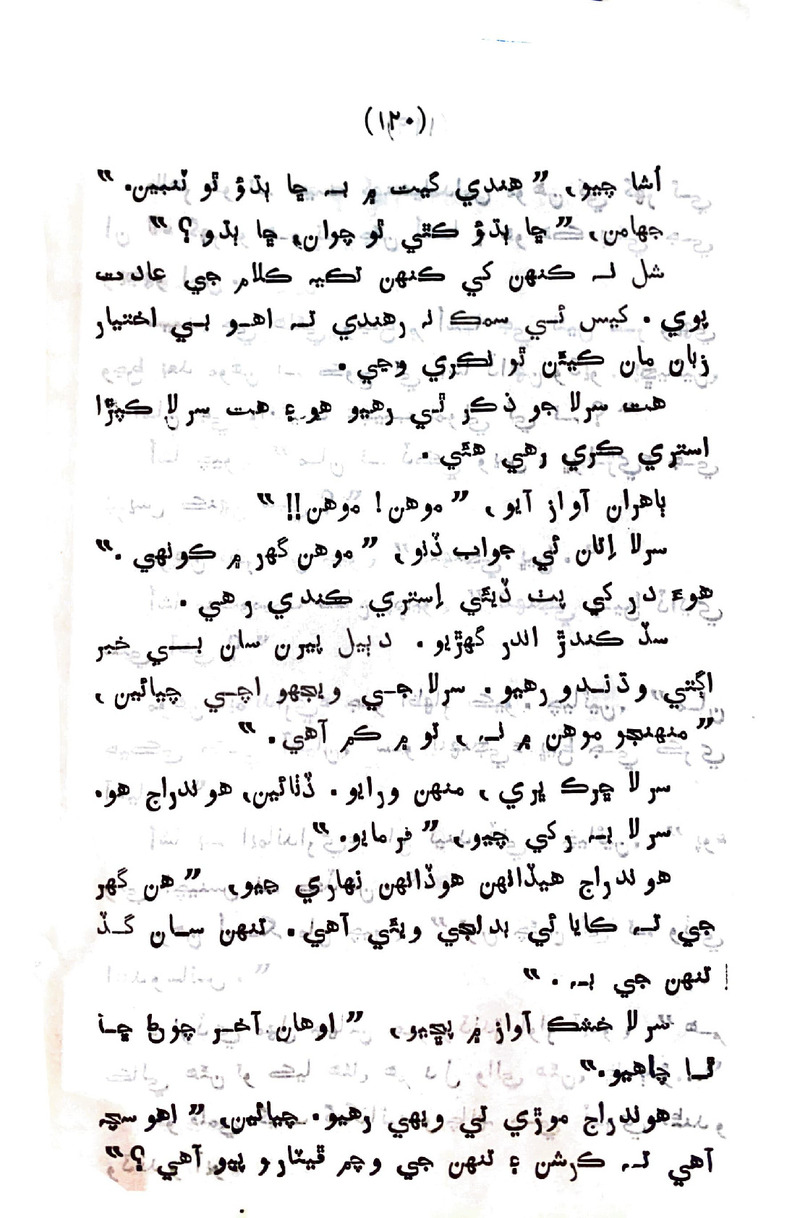 (١٢٠)
اُشا چيو، ”هندي گيت ۾ به ڇا ٻڌڻو ٿو ٽنبين.“
جهامن، ”ڇا ٻڌڻو ڪٿي ٿو چوان، ڇا ٻڌو ؟“
شل نہ ڪنهن کي ڪنهن تڪيہ ڪلام جي عادت
پوي. کيس ئي سمڪ نہ رهندي تہ اهو بي اختيار
زبان مان ڪيئن ٿو نڪري وڃي.
هت سرلا جو ذڪر ٿي رهيو هو ۽ هت سرلا ڪپڙا
استري ڪري رهي هئي.
ٻاهران آواز آيو، ”موهن! موهن!!“
سرلا اِتان ئي جواب ڏنو، ”موهن گهر ۾ ڪونهي.“
هوءَ در کي پٺ ڏيئي اِستري ڪندي رهي.
سڏ ڪندڙ اندر گهڙيو. دٻيل پيرن سان بي خبر
اڳتي وڌندو رهيو. سرلا جي ويجهو اچي چيائين،
”منهنجو موهن ۾ نہ، تو ۾ ڪم آهي.“
سرلا ڇرڪ ڀري، منهن ورايو. ڏٺائين، هوندراج هو.
سرلا بہ رکي چيو، ”فرمايو.“
هوندراج هيڏانهن هوڏانهن نهاري چيو، ”هن گهر
جي تہ ڪايا ئي بدلجي ويئي آهي. تنهن سان گڏ
تنهن جي بہ.“
سرلا خشڪ آواز ۾ پڇيو، ”اوهان آخر چوڻ ڇا
ٿا چاهيو.“
هوندراج موڙي تي ويهي رهيو. چيائين، ”اهو سچ
آهي تہ ڪرشن ۽ تنهن جي وچ ۾ ڦيٽارو پيو آهي ؟“